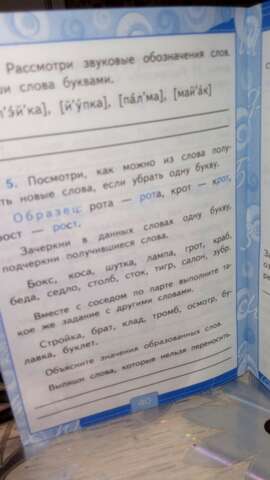 Рассмотри звуковые обозначения слов.
ши слова буквами.
[й'ка], [й'у́пка], [па́л'ма], [май'а́к]
5. Посмотри, как можно из слова полу-
ть новые слова, если убрать одну букву.
Образец: рота — рота, крот — крот,
рост — рост.
Зачеркни в данных словах одну букву,
подчеркни получившиеся слова.
Бокс, коса, шутка, лампа, грот, краб,
беда, седло, столб, сток, тигр, салон, зубр.
Вместе с соседом по парте выполните та-
кое же задание с другими словами.
Стройка, брат, клад, тромб, осмотр, бу-
лавка, буклет.
Объясните значения образованных слов.
Выпиши слова, которые нельзя переносить.
40